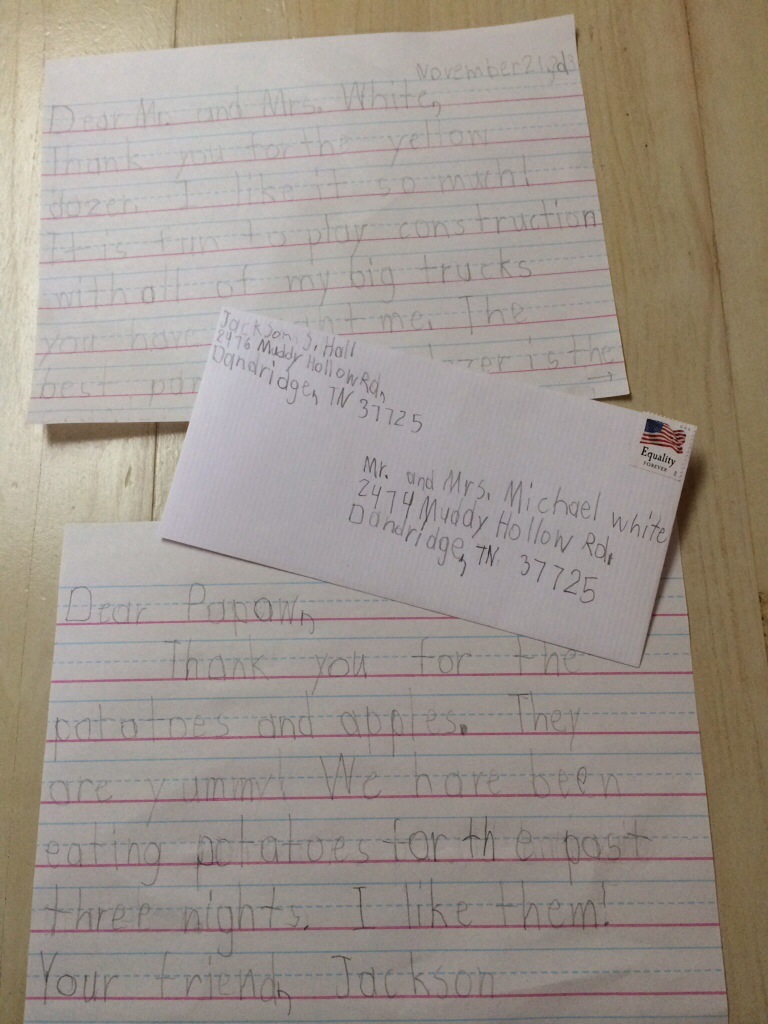 November 21, 2013
Dear Mr. and Mrs. White,
Thank you for the yellow
dozer. I like it so much!
It is fun to play construction
with all of my big trucks
you have me. The
best is the
Jackson S. Hall
2476 Muddy Hollow Rd,
Dandridge, TN 37725
Equality
FOREVER
Mr. and Mrs. Michael White
2474 Muddy Hollow Rd.
Dandridge, TN 37725
Dear Papaw,
Thank you for the
potatoes and apples. They
are yummy! We have been
eating potatoes for the past
three nights. I like them!
Your friend, Jackson